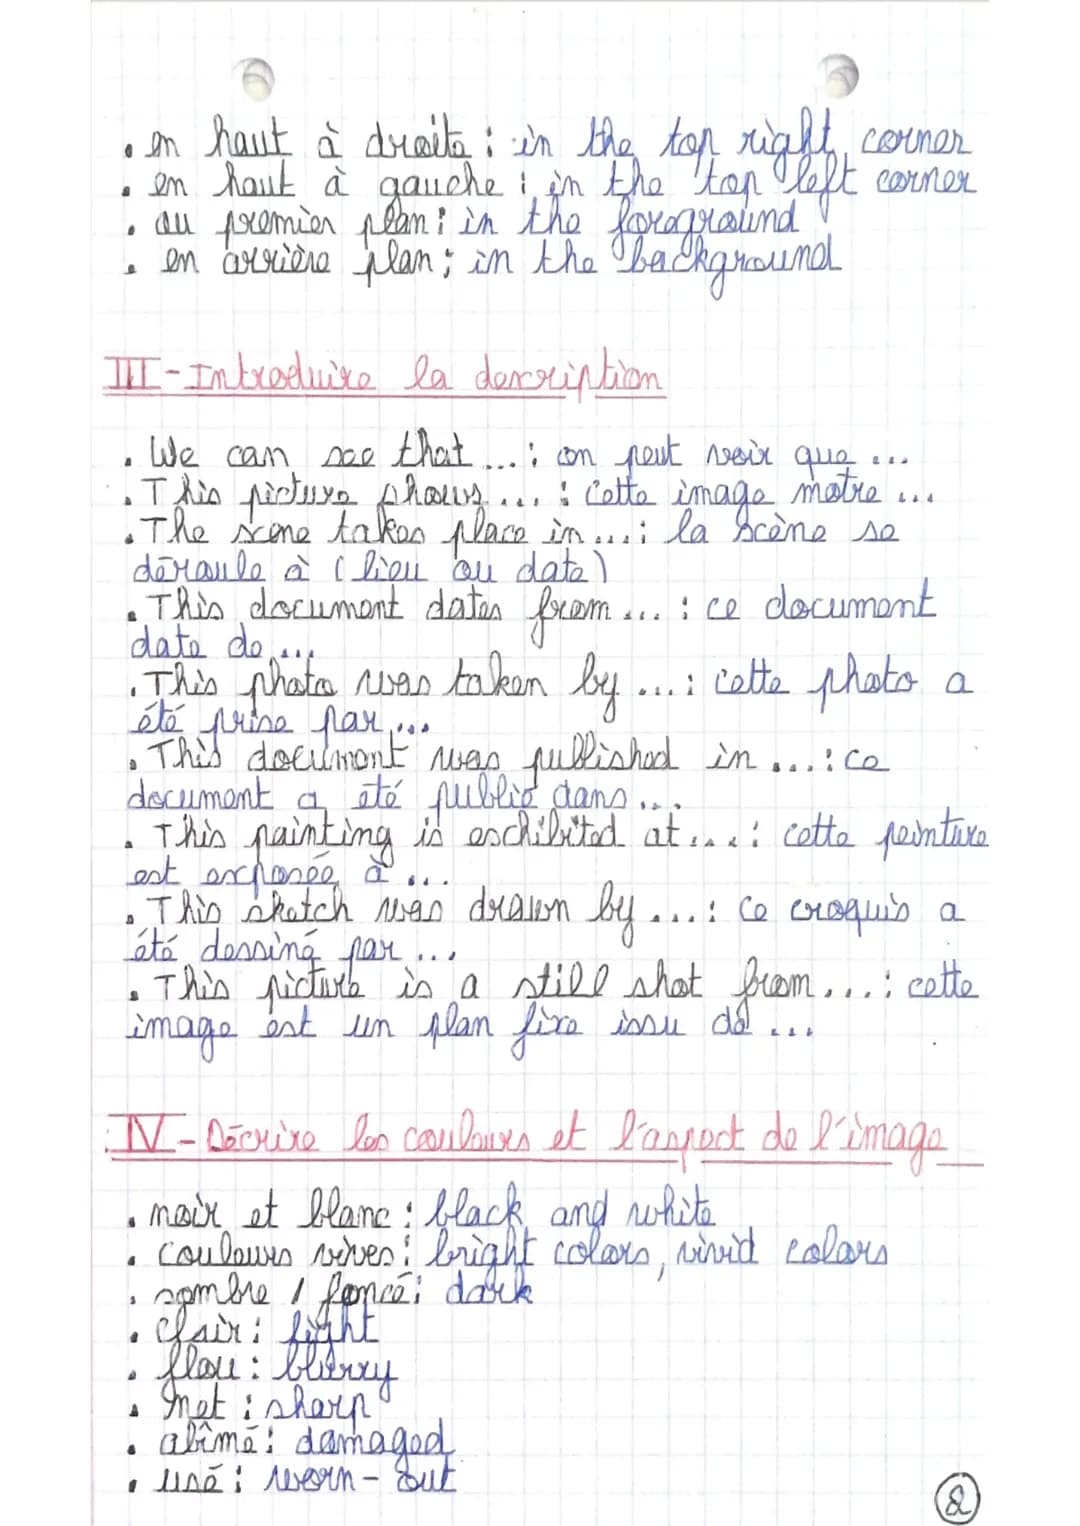 • en haut à droite : in the top right corner
• en haut à gauche : in the top left corner
• au premier plan : in the foreground
• en arrière plan : in the background
III - Introduire la description
• We can see that ... : on peut voir que ...
• This picture shows ... : cette image motre ...
• The scene takes place in ... : la scène se
déroule à (lieu ou date)
• This document dates from ... : ce document
date de ...
• This photo was taken by ... : cette photo a
été prise par ...
• This document was published in ... : ce
document a été publié dans ...
• This painting is exhibited at ... : cette peinture
est exposée à ...
• This sketch was drawn by ... : ce croquis a
été dessiné par ...
• This picture is a still shot from ... : cette
image est un plan fixe issu de ...
IV - Décrire les couleurs et l'aspect de l'image
• noir et blanc : black and white
• couleurs vives : bright colors, vivid colors
• sombre / foncé : dark
• clair : light
• flou : blurry
• net : sharp
• abîmé : damaged
• usé : worn - out
2